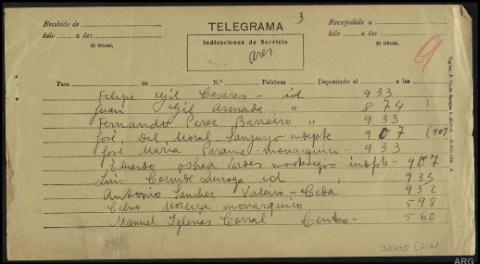 TELEGRAMA
3
Recibido de
hilo a las
El Oficial,
Indicaciones de Servicio
ares
Reexpedido a
hilo a las
El Oficial,
9
Para de N.º Palabras Depositado el a las
Felipe Gil Casares - id 933
Juan Gil Armada " 874
Fernando Perez Barreiro " 933
José del Moral Sanjurjo 907 (907
José Maria monarquico - 933
Eduardo montenegro indpte - 907
Luis Cornide Quiroga id 933
Antonio Sanchez Valeiro - Ceda 932
Moreira monarquico 598
Manuel Iglesias Corral Centro - 560
ARG